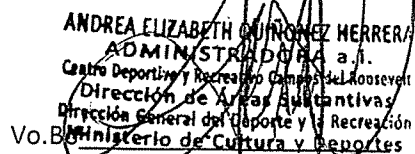 ANDREA ELIZABETH QUIÑONEZ HERRERA
ADMINISTRADORA a.i.
Centro Deportivo y Recreativo Campos del Roosevelt
Dirección de Áreas Sustantivas
Dirección General del Deporte y la Recreación
Vo.Bo Ministerio de Cultura y Deportes